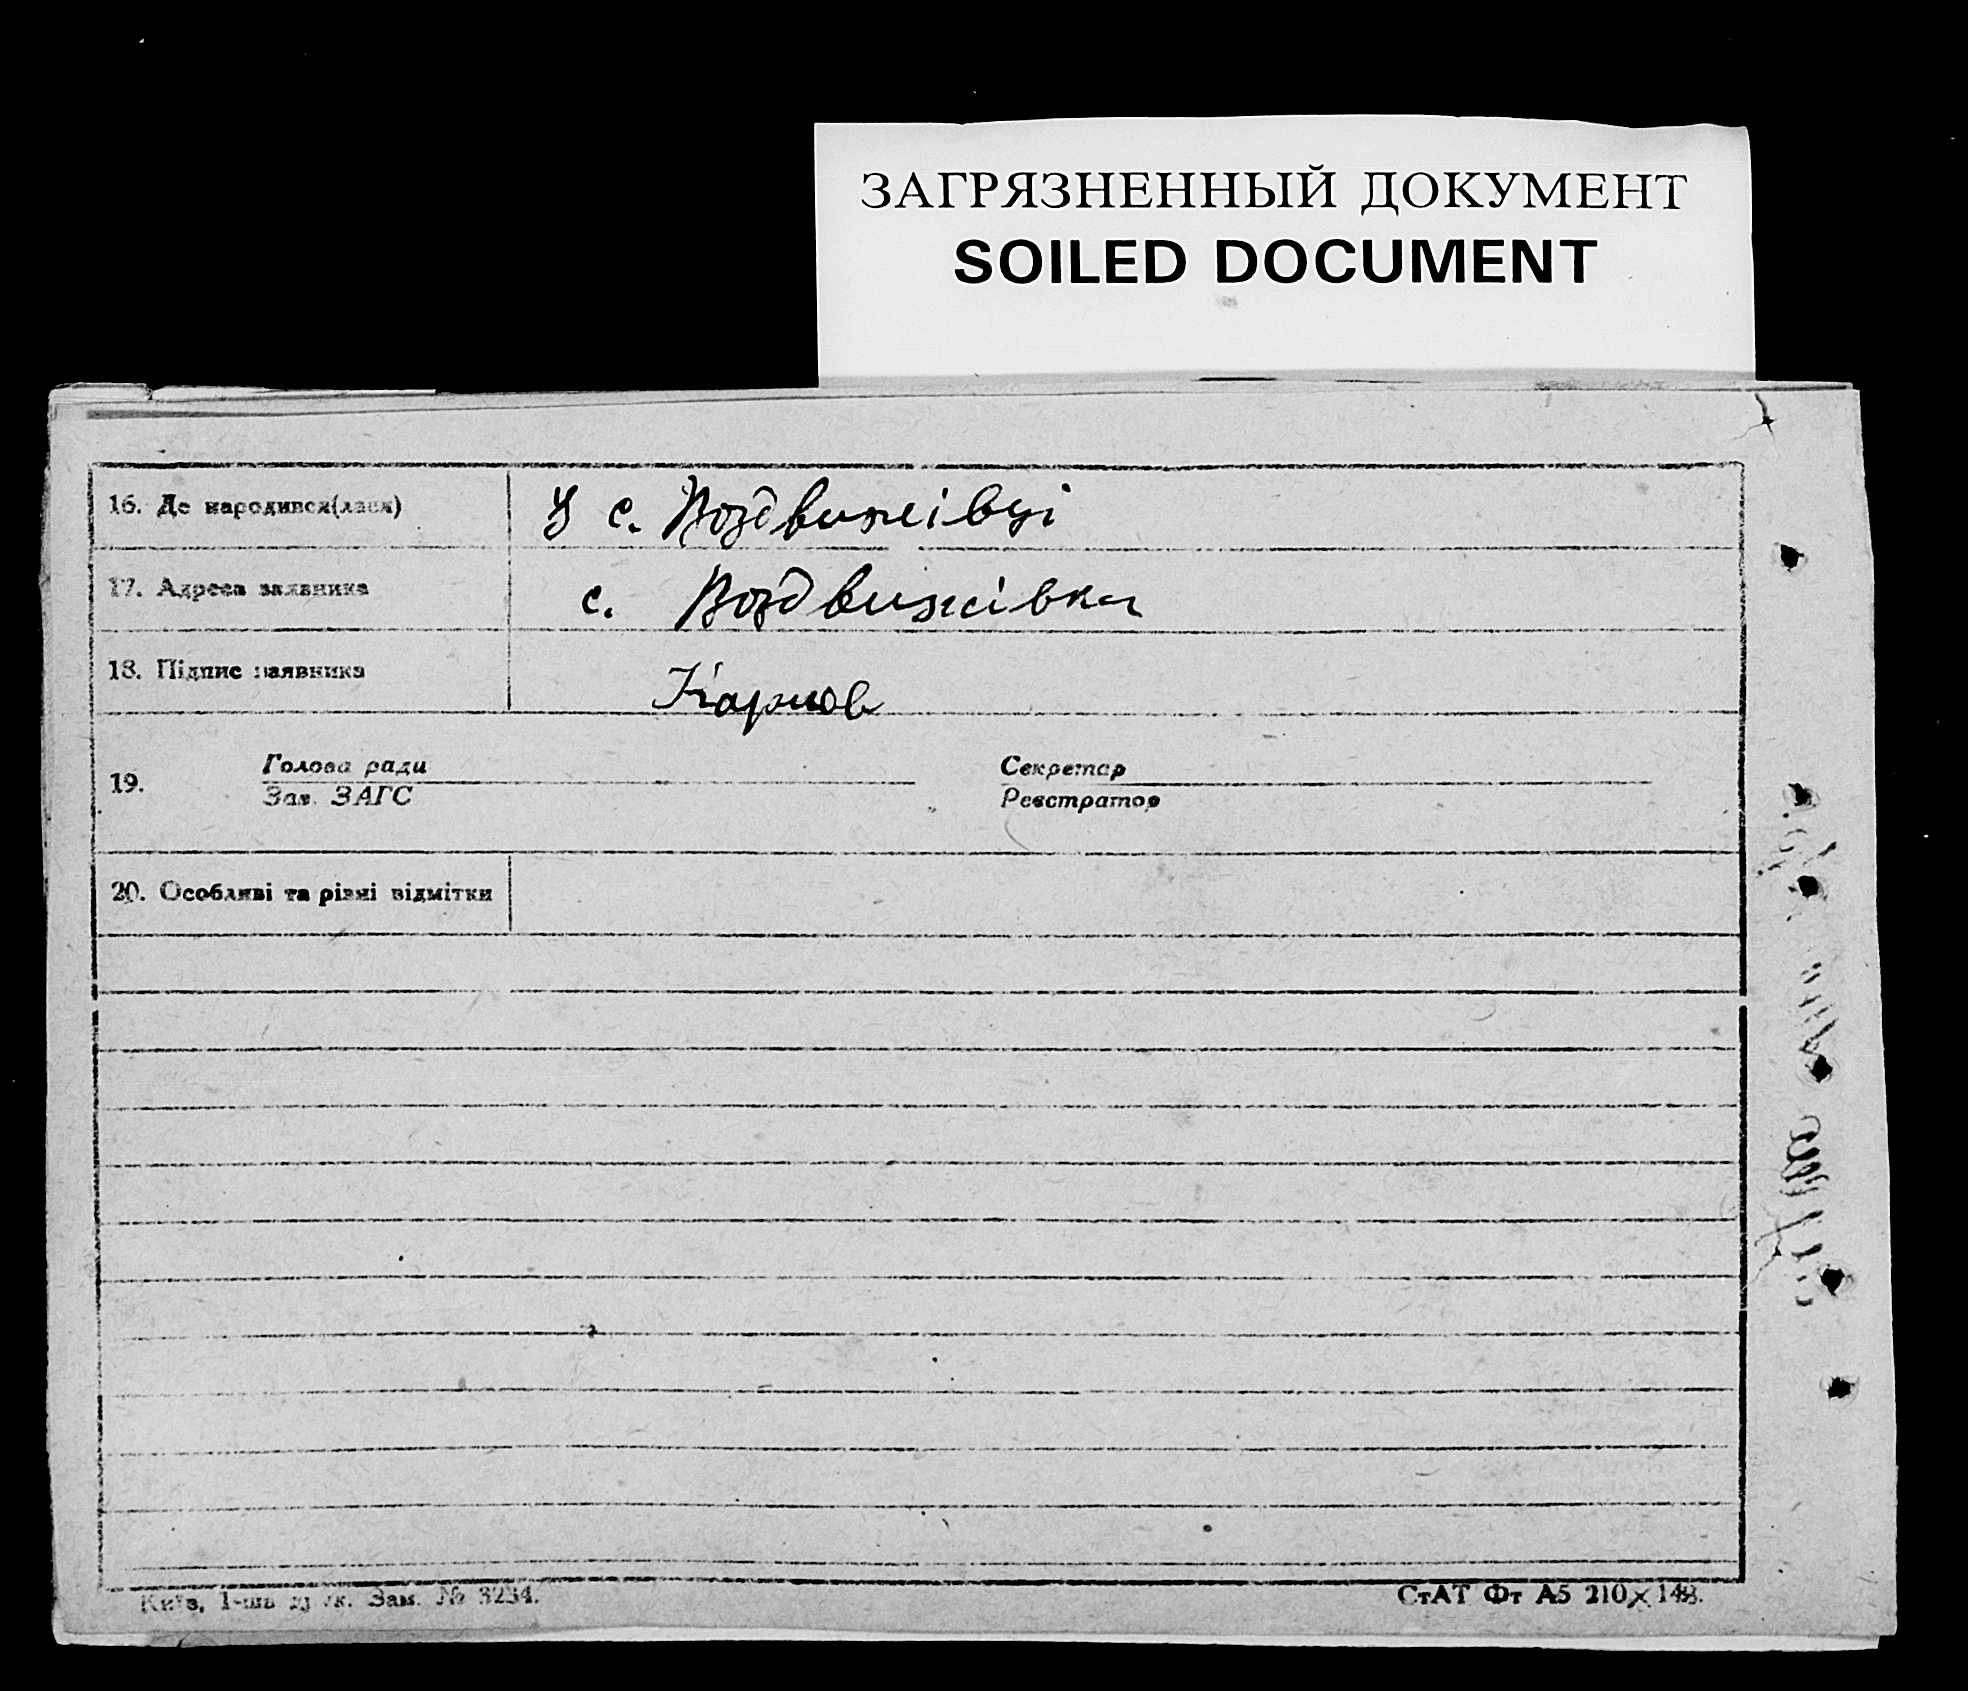 ЗАГРЯЗНЕННЫЙ ДОКУМЕНТ
SOILED DOCUMENT
16. Де народився(лася) У с. Воздвижівці
17. Адреса заявника с. Воздвижівка
18. Підпис заявника Карпов
19. Голова ради Секретар
Зав. ЗАГС Реєстратор
20. Особливі та різні відмітки
Київ, 1-ша друк. Зам. № 3234.
СтАТ Фт А5 210×148.